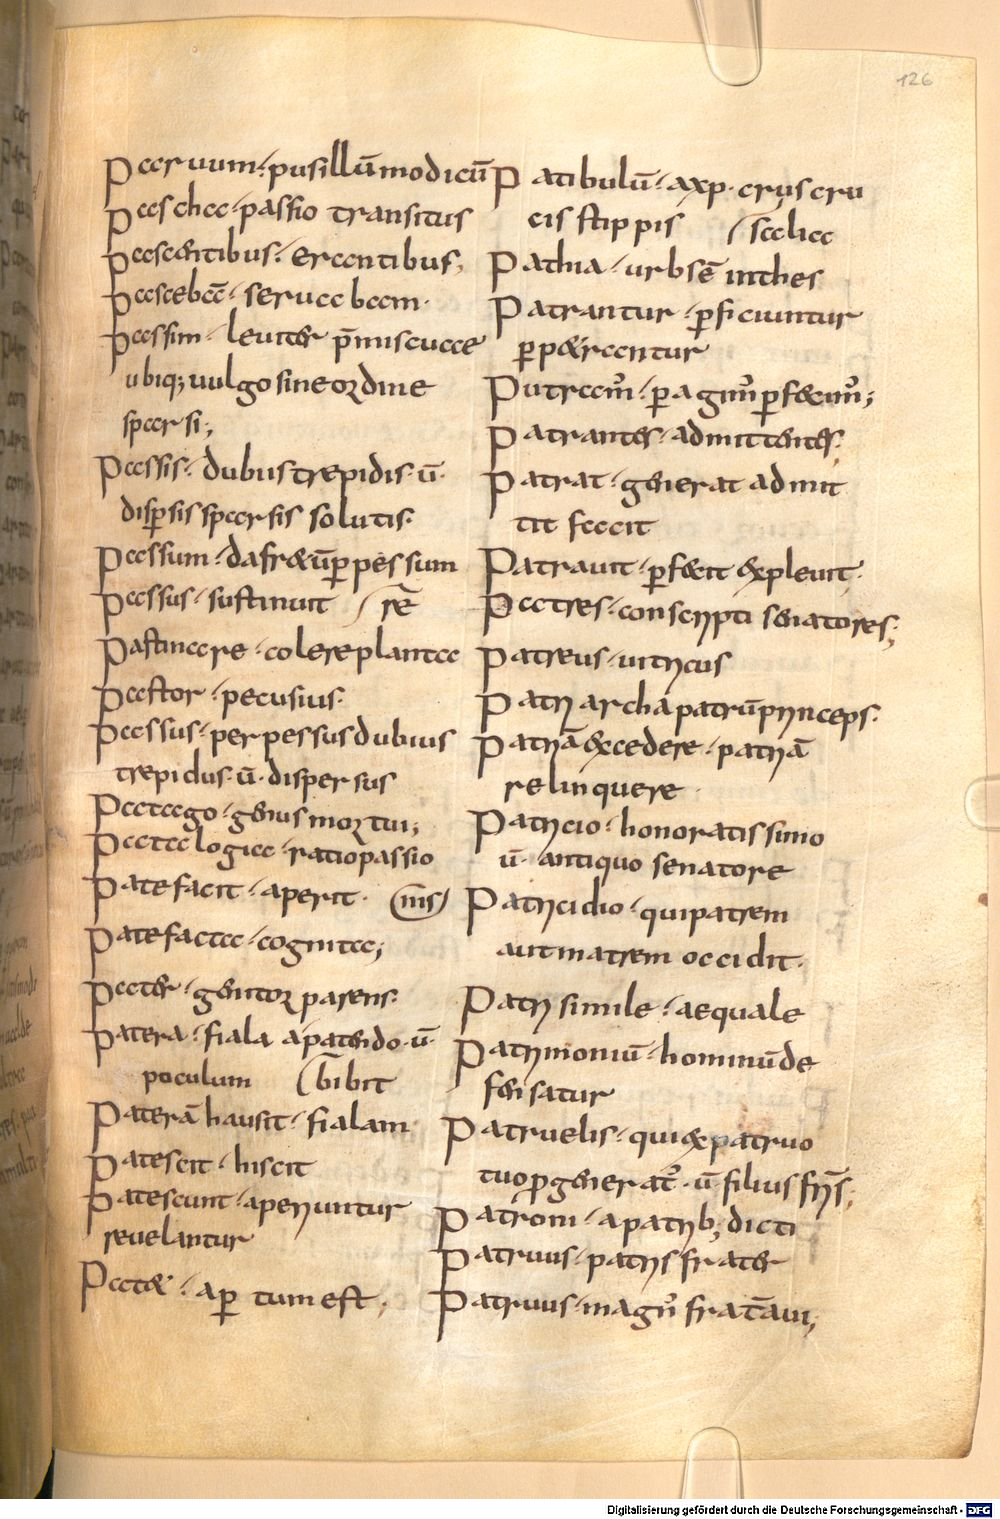 126
Paruum · pusillū modicū
Pascha · passio transitus
Pascentibus · ercentibus;
Pascebā · seruabam ·
Passim · leuiter p̄miscuae
ubiq; uulgo sine ordine
sparsi;
Passis · dubiis trepidis · ū ·
dispsis sparsis solutis ·
Passum · dafr&ūp pessum
Passus · sustinuit / rē
Pastinare · colere plantae
Pastor · pecusius ·
Passus · perpessus dubius
trepidus · ū · dispersus
Patago · genus mortui;
Patalogia · ratio passio
Patefacit · aperit · (inis)
Patefacta · cognita;
Pater · genitor parens ·
Patera · fiala apatendo · ū ·
poculum (bibit
Paterā hausit · fialam
Patescit · hiscit
Patescunt · aperiuntur
reuelantur
Pat& · ap tum est;
Patibulū · axp · crus cru
cis stippis / scalae
Pathia · urbsē inthes
Patrantur · pficiuntur
pp&rantur
Putream · p agim pf&cim;
Patrantes · admittentes;
Patrat · generat admit
tit facit
Patrauit · pf&cit expleuit ·
Patres · conscripti senatores;
Patreus · uitricus
Patriarcha patrū princeps ·
Patriā excedere · patriā
relinquere ·
Patricio · honoratissimo
ū · antiquo senatore
Patricidio · qui patrem
aut matrem occidit ·
Patri simile · aequale
Patrimoniū · hominū de
fensatur
Patruelis · qui ex patruo
tuo pgenerat · ū · filius fris;
Patroni · a patrib; dicti
Patruus · patris frater
Patruus · magn frat aui;
Digitalisierung gefördert durch die Deutsche Forschungsgemeinschaft - DFG